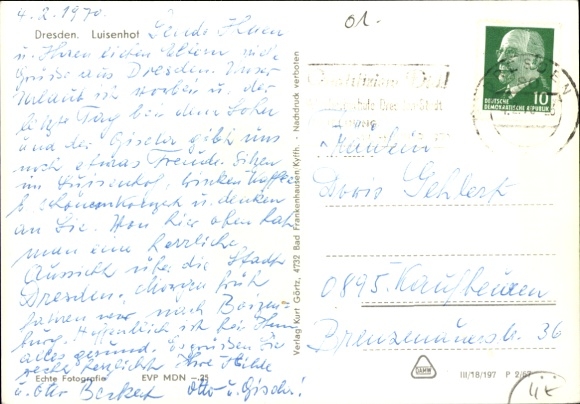 4.2.1970.
Dresden. Luisenhof
Sende Ihnen
u. Ihren lieben Eltern viele
Grüsse aus Dresden. Unser
Urlaub ist vorbei u. der
letzte Tag bei dem Sohn
und der Gisela gibt uns
noch etwas Freude. Sitzen
im Luisenhof, trinken Kaffee
u. denken
an Sie. Von hier oben hat
man eine herrliche
Aussicht über die Stadt
Dresden. Morgen früh
fahren wir nach Boizen-
burg. Hoffentlich ist bei Ihnen
alles gesund. Es grüssen Sie
recht herzlichst Ihre Hilde
u. Otto Becker Otto u. Gisela!
Echte Fotografie EVP MDN -,25
Verlag Kurt Görtz, 4732 Bad Frankenhausen/Kyffh. · Nachdruck verboten
01.
DEUTSCHE
DEMOKRATISCHE REPUBLIK
10
Fräulein
Doris Gehlert
0895 Kaufbeuren
36
DAWW
III/18/197 P 2/67